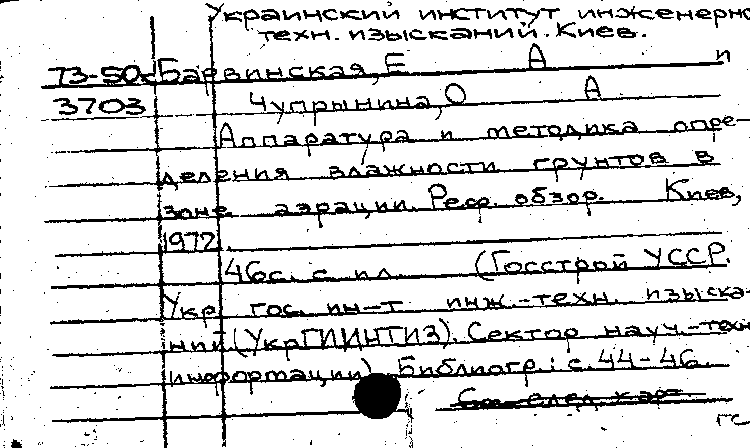 Украинский институт инженерно
техн. изысканий. Киев.
73-50c Барвинская, Е А и
3703 Чупрынина, О А
Аппаратура и методика опре-
деления влажности грунтов в
зоне аэрации. Реф. обзор. Киев,
1972.
46с. с ил. (Госстрой УССР.
Укр гос. ин-т инж.-техн. изыска-
ний (УкрГИИНТИЗ). Сектор науч.-техн
информации). Библиогр.: с. 44-46.
См. след. карт.